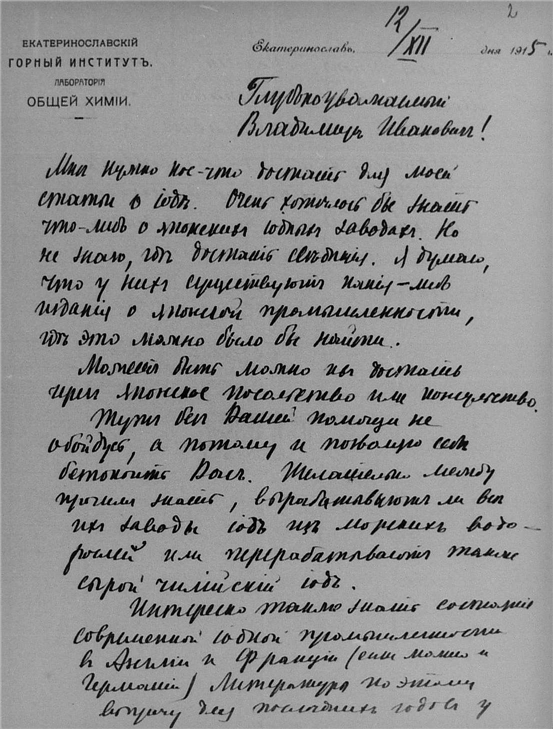 ЕКАТЕРИНОСЛАВСКІЙ
ГОРНЫЙ ИНСТИТУТЪ.
ЛАБОРАТОРІЯ
ОБЩЕЙ ХИМІИ.
2
Екатеринославъ, 12/XII дня 1915 г.
Глубокоуважаемый
Владимиръ Ивановичъ!
Мнѣ нужно кое-что достать для моей
статьи о іодѣ. Очень хотѣлось бы знать
что-либо о японскихъ іодныхъ заводахъ. Но
не знаю, гдѣ достать свѣдѣнія. Я думаю,
что у нихъ существуютъ какія-либо
изданія о японской промышленности,
гдѣ это можно было бы найти.
Можетъ быть можно их достать
через японское посольство или консульство.
Тутъ без Вашей помощи не
обойдусь, а потому и позволяю себѣ
безпокоить Васъ. Желательно между
прочимъ знать, вырабатываютъ ли все
их заводы іодъ изъ морскихъ водо-
рослей или перерабатываютъ также
сырой чилійскій іодъ.
Интересно также знать состояніе
современной іодной промышленности
въ Англіи и Франціи (если можно и
Германіи) Литература по этому
вопросу для последнихъ годовъ у